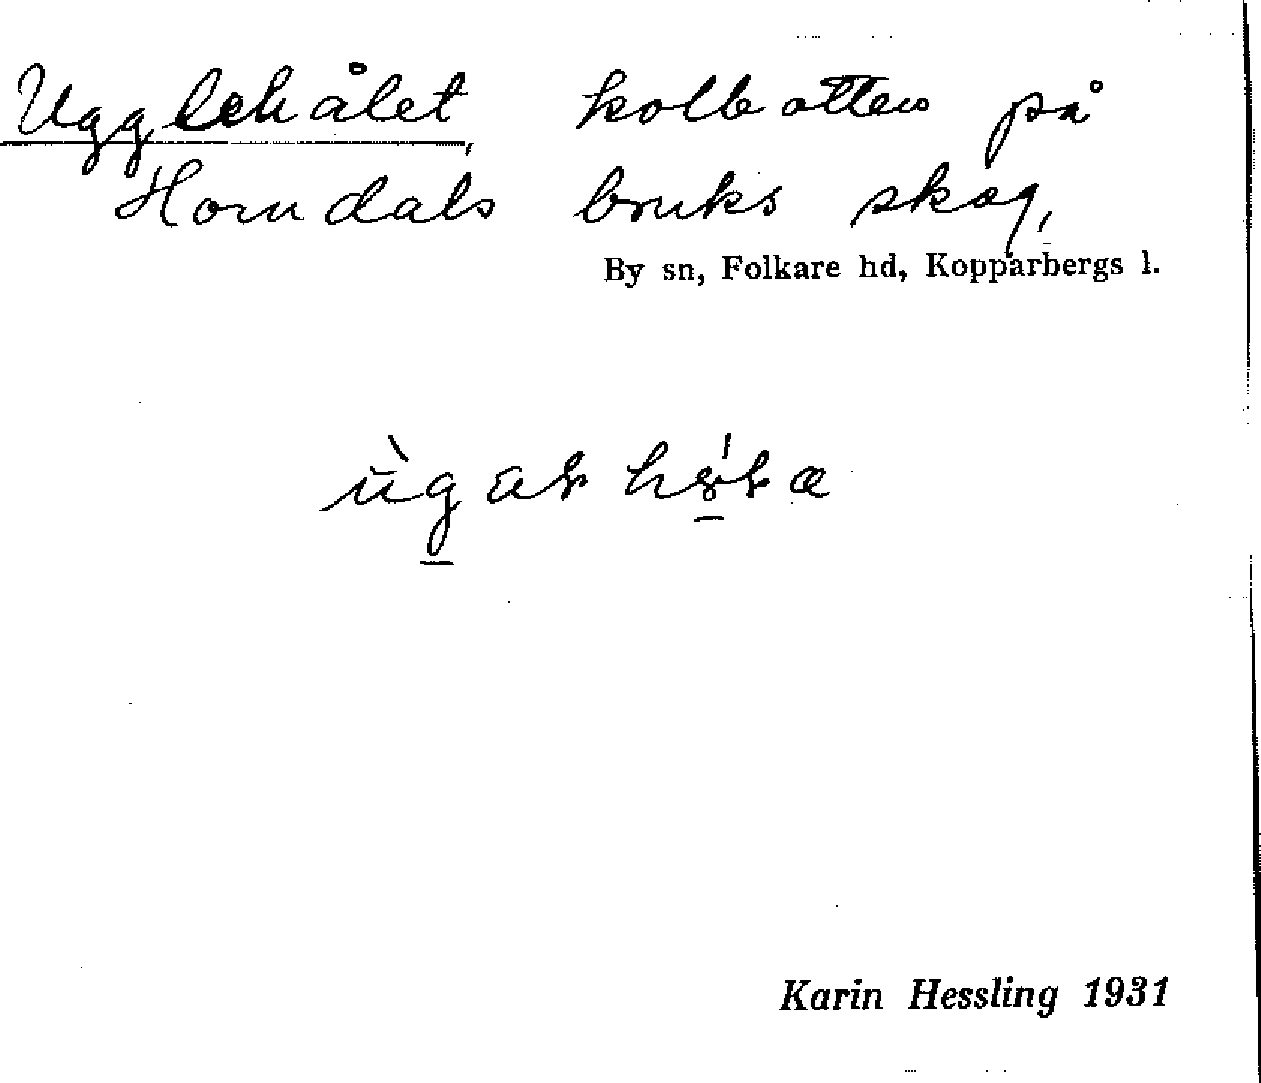 Ugglehålet, kolbotten på
Horndals bruks skog,
By sn, Folkare hd, Kopparbergs l.
Karin Hessling 1931